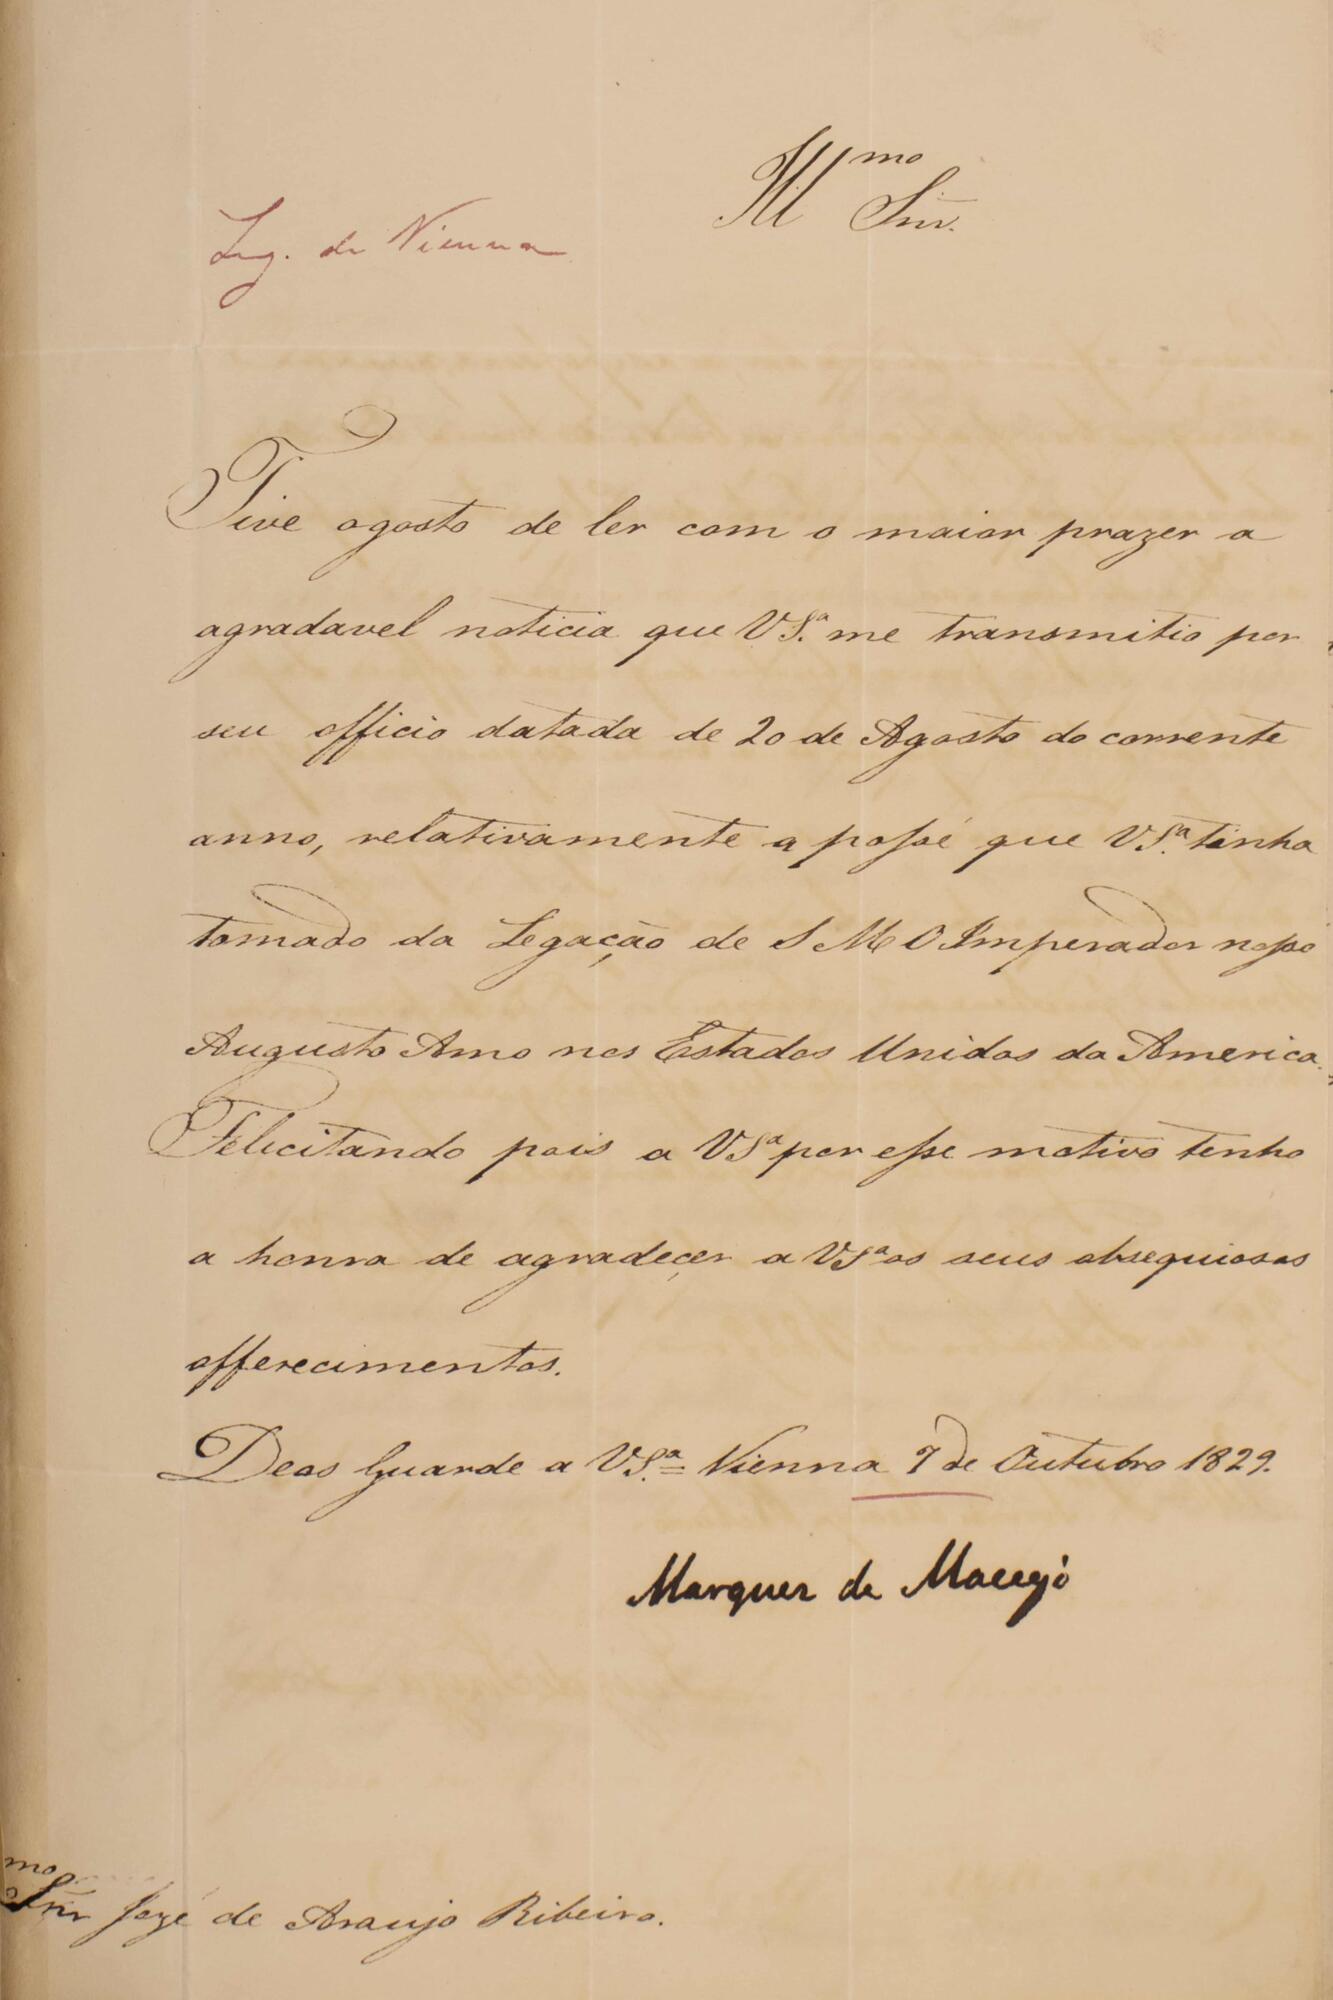 Illmo Snr.
Leg. de Vienna
Tive ogosto de ler com o maior prazer a
agradavel noticia que VSa. me transmitio por
seu officio datada de 20 de Agosto do corrente
anno, relativamente a posse que VSa. tinha
tomado da Legação de S M O Imperador nosso
Augusto Amo nos Estados Unidos da America.
Felicitando pois a VSa por esse motivo tenho
a honra de agradeçer a VSa os seus obsequiosos
offerecimentos.
Deos Guarde a VSa. = Vienna 7 de Outubro 1829.
Marquez de Maceyó
mo
Snr Jozé de Araujo Ribeiro.